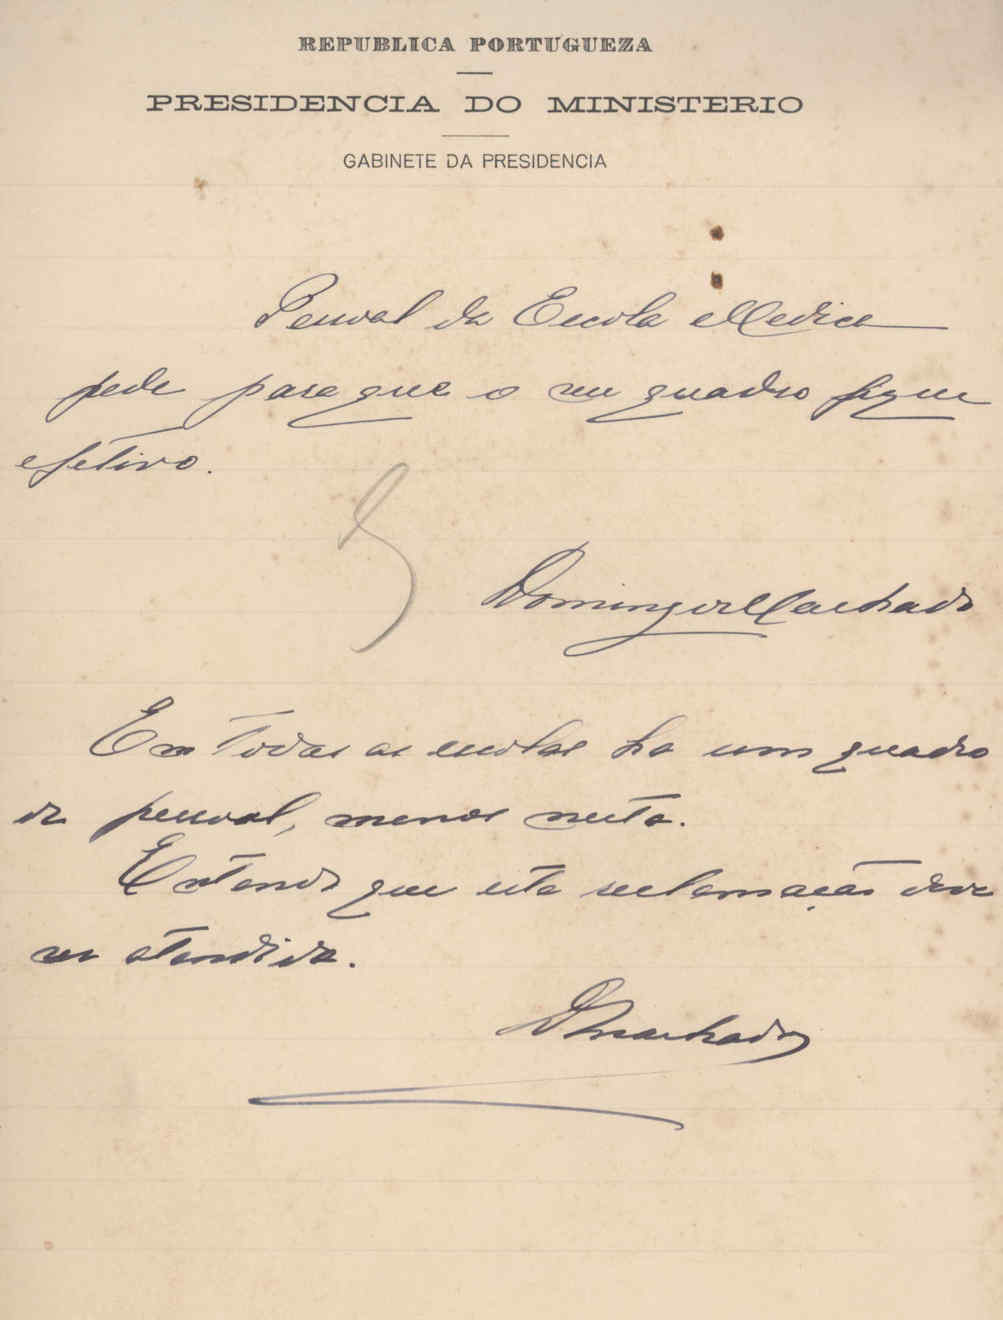 REPUBLICA PORTUGUEZA
PRESIDENCIA DO MINISTERIO
GABINETE DA PRESIDENCIA
Pessoal da Escola Medica
pede para que o seu quadro fique
efetivo.
Domingos Machado
Em todas as escolas ha um quadro
de pessoal, menos nesta.
Entendo que esta reclamação deve
ser atendida.
DMachado